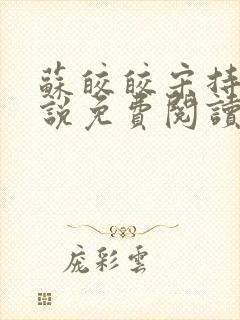 蘇皎皎宋持
說免費閱讀
龐彩雲